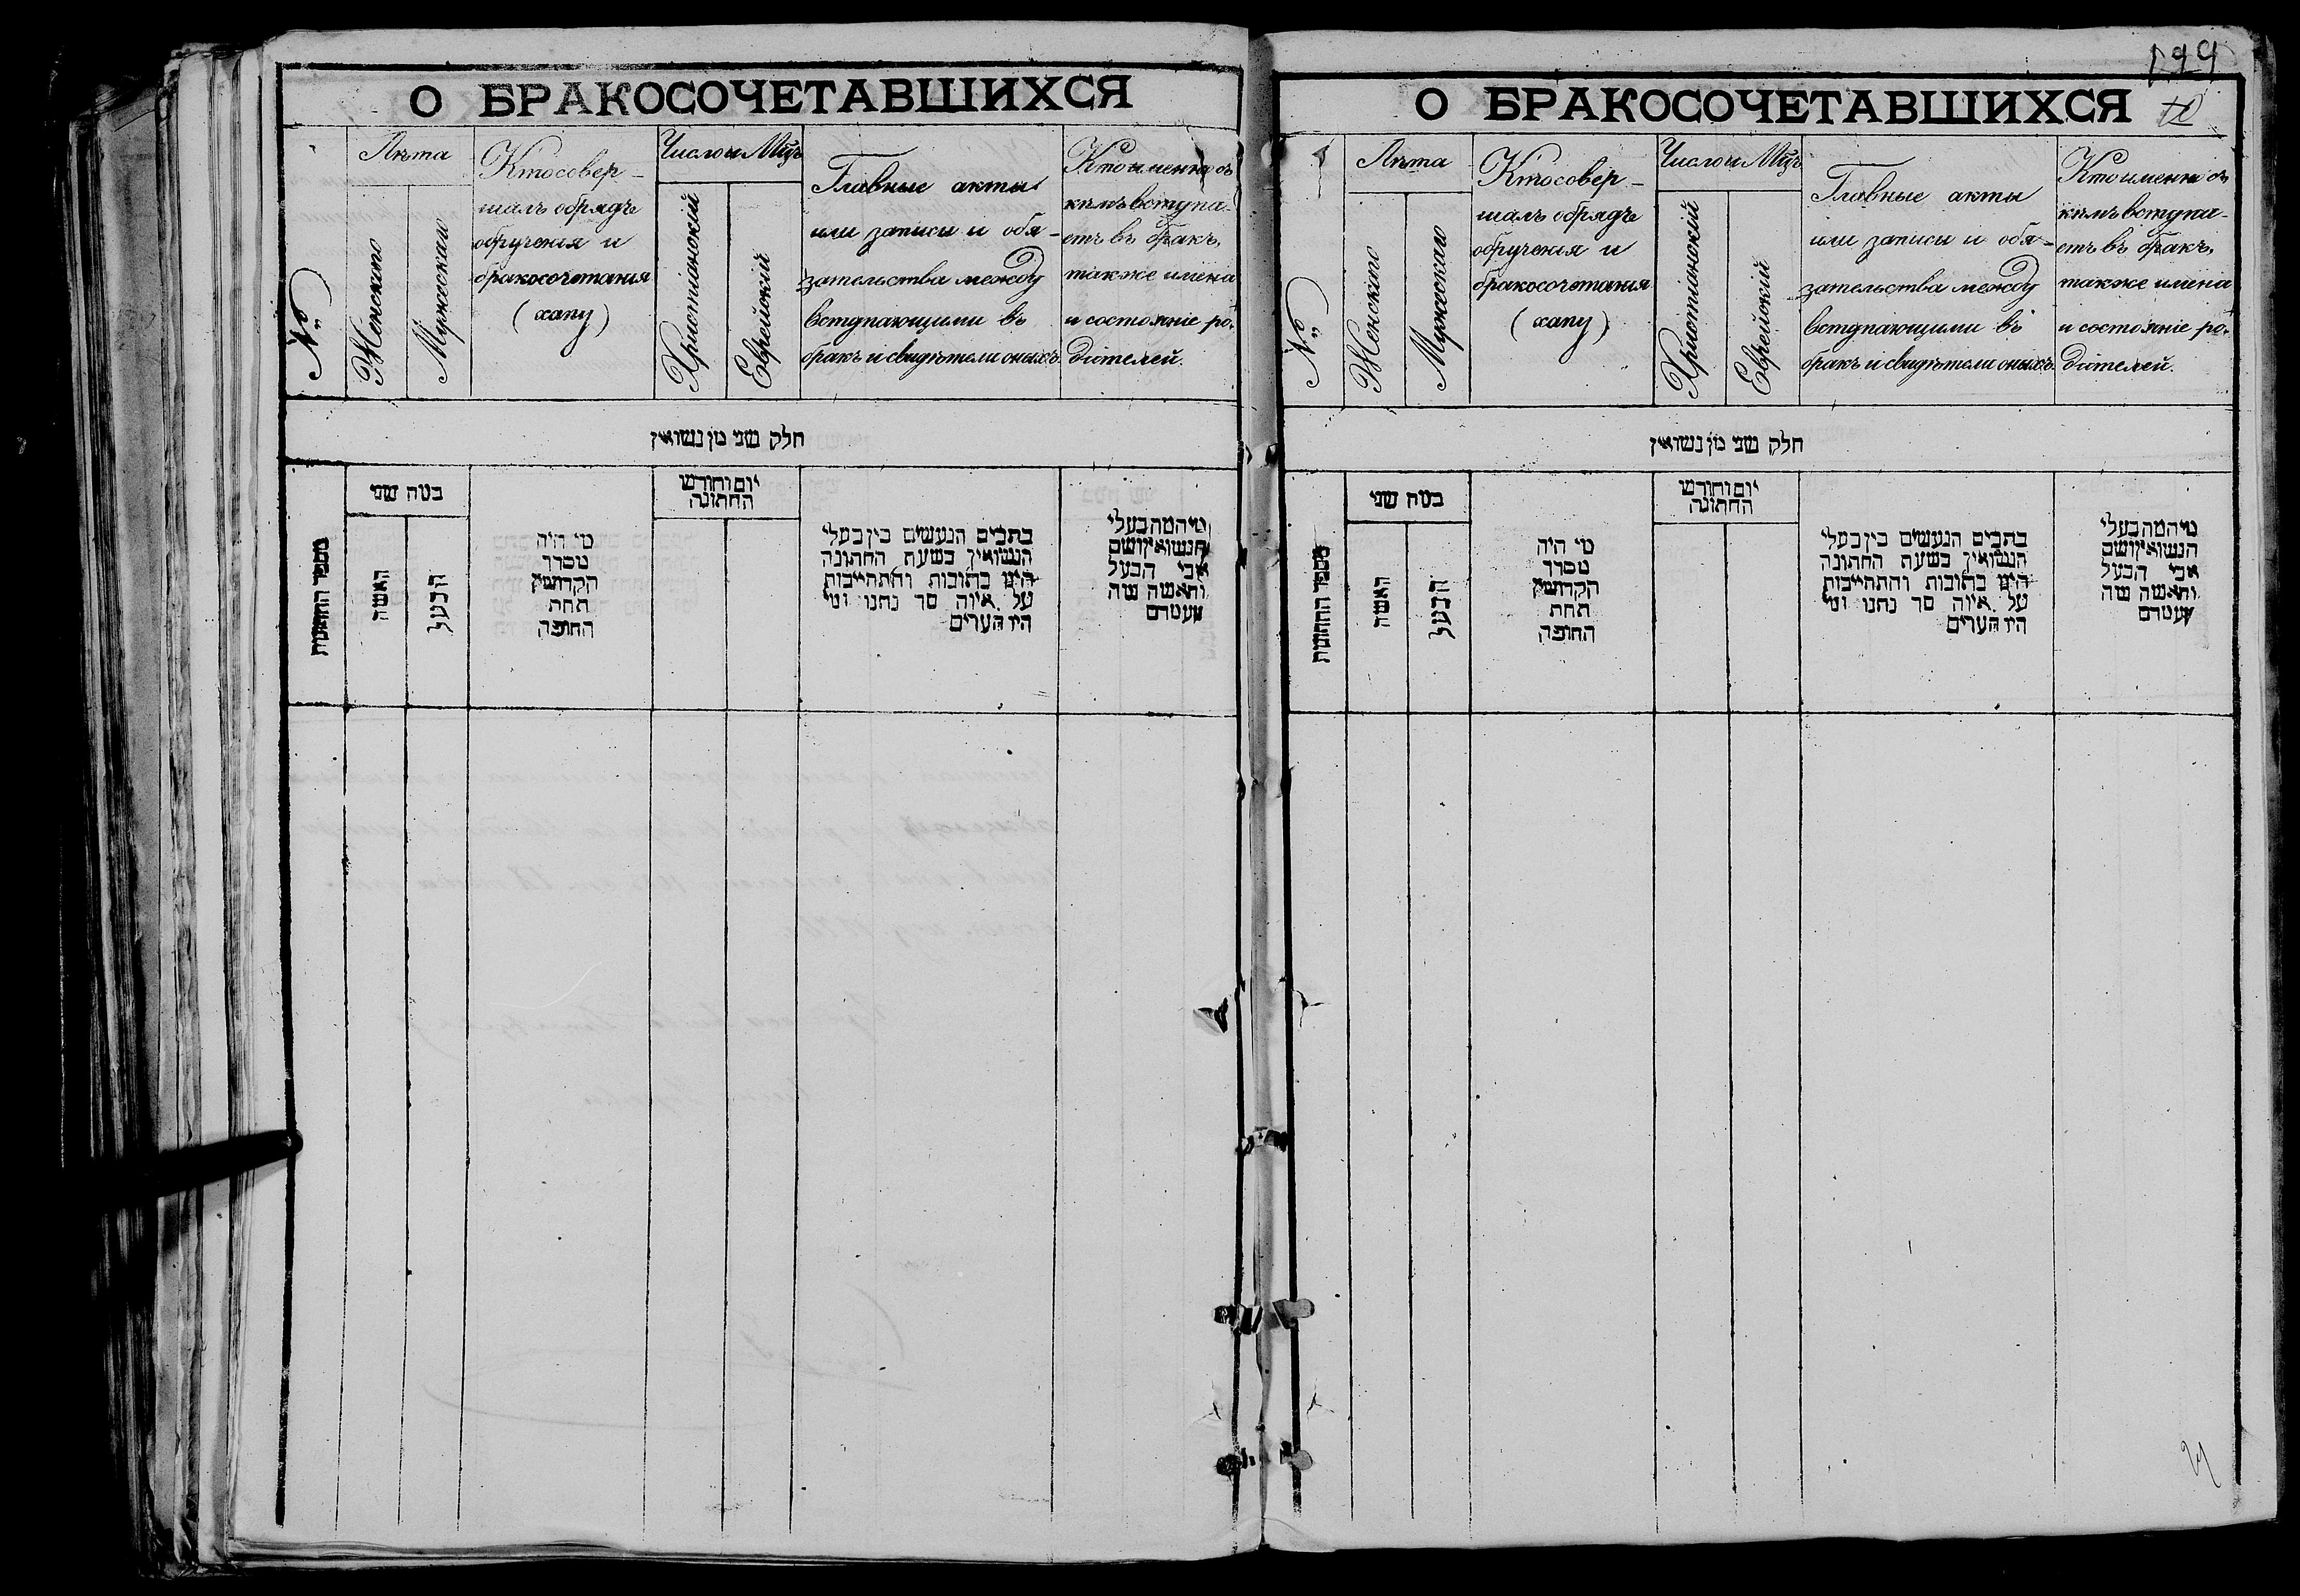 О БРАКОСОЧЕТАВШИХСЯ
№
Лѣта
Женскаго
Мужескаго
Кто совер-
шалъ обрядъ
обрученія и
бракосочетанія
(хапу)
Число и Мцъ
Христіанскій
Еврейскій
Главные акты
или записи и обя-
зательства между
вступающими въ
бракъ и свидѣтели оныхъ.
Кто именно съ
кѣмъ вступа-
етъ въ бракъ,
также имена
и состояніе ро-
дителей.
חלק שני מן נשואין
מספר החתונות
במה שני
האשה
הבעל
מי היה
מסדר
הקדושין
תחת
החופה
יום וחודש
החתונה
בתבים הנעשים בין בעלי
הנשואין בשעת החתונה
היינו כתובות והתחייבות
על איזה סך נתנו ומי
היו הערים
מי המה בעלי
הנשואין ושם
אבי הבעל
והאשה ומה
מעמדם
199
О БРАКОСОЧЕТАВШИХСЯ
10
№
Лѣта
Женскаго
Мужескаго
Кто совер-
шалъ обрядъ
обрученія и
бракосочетанія
(хапу)
Число и Мцъ
Христіанскій
Еврейскій
Главные акты
или записи и обя-
зательства между
вступающими въ
бракъ и свидѣтели оныхъ.
Кто именно съ
кѣмъ вступа-
етъ въ бракъ,
также имена
и состояніе ро-
дителей.
חלק שני מן נשואין
מספר החתונות
במה שני
האשה
הבעל
מי היה
מסדר
הקדושין
תחת
החופה
יום וחודש
החתונה
בתבים הנעשים בין בעלי
הנשואין בשעת החתונה
היינו כתובות והתחייבות
על איזה סך נתנו ומי
היו הערים
מי המה בעלי
הנשואין ושם
אבי הבעל
והאשה ומה
מעמדם